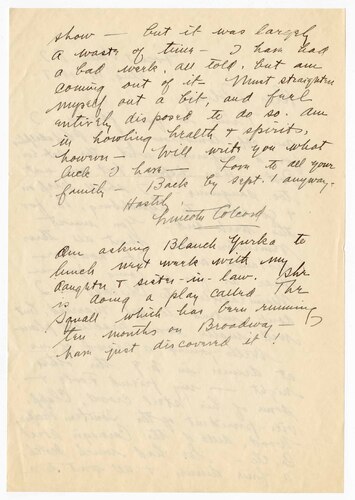 show — but it was largely
a waste of time — I have had
a bad week, all told, but am
coming out of it — Must straighten
myself out a bit, and feel
entirely disposed to do so. Am
in howling health & spirits,
however — Will write you what
luck I have — Love to all your
family — Back by Sept. 1 anyway.
Hastily,
Lincoln Colcord
Am asking Blanch Yurka to
lunch next week with my
daughter & sister-in-law. She
is doing a play called The
Squall which has been running
ten months on Broadway —
have just discovered it!